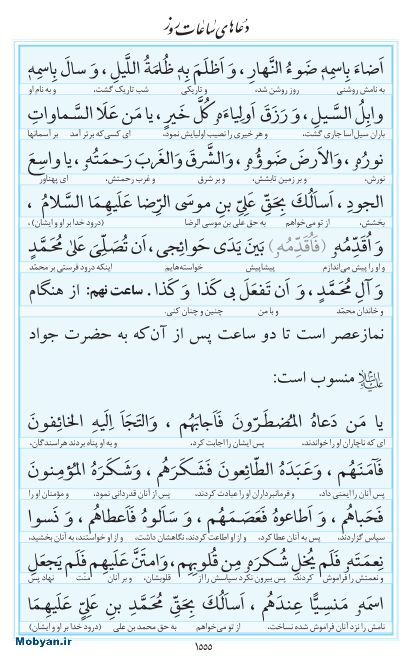 دعاهای ساعات روز
اَضاءَ بِاسمِهِ ضَوءُ النَّهارِ ، وَ اَظلَمَ بِهِ ظُلمَةُ اللَّيلِ ، وَ سالَ بِاسمِهِ
به نامش روشنی روز روشن شد، و تاریکی شب تاریک گشت، و به نام او
وابِلُ السَّيلِ ، وَ رَزَقَ اَولِياءَهُ كُلَّ خَيرٍ ، يا مَن عَلَا السَّماواتِ
باران سیل‌آسا جاری گشت، و هر خیری را نصیب اولیایش نمود، ای کسی که برتر آمد بر آسمانها
نورُهُ ، وَ الاَرضَ ضَوؤُهُ ، وَ الشَّرقَ وَ الغَربَ رَحمَتُهُ ، يا واسِعَ
نورش، و بر زمین تابشش، و بر شرق و غرب رحمتش، ای پهناور
الجودِ ، اَسأَلُكَ بِحَقِّ عَلِيِّ بنِ موسَى الرِّضا عَلَيهِمَا السَّلامُ ،
بخشش، از تو می‌خواهم به حق علی بن موسی الرضا (درود خدا بر او و ایشان)،
وَ اُقَدِّمُهُ (فَاُقَدِّمُهُ) بَينَ يَدَى حَوائِجى ، اَن تُصَلِّىَ عَلىٰ مُحَمَّدٍ
و او را پیش می‌اندازم پیشاپیش خواسته‌هایم اینکه درود فرستی بر محمّد
وَ آلِ مُحَمَّدٍ ، وَ اَن تَفعَلَ بى كَذا وَ كَذا . ساعت نهم: از هنگام
و خاندان محمّد و با من چنین و چنان کنی.
نمازعصر است تا دو ساعت پس از آن‌که به حضرت جواد
علیه‌السلام منسوب است:
يا مَن دَعاهُ المُضطَرّونَ فَاَجابَهُم ، وَ التَجَأَ اِلَيهِ الخائِفونَ
ای که ناچاران او را خواندند، پس ایشان را اجابت کرد، و به او پناه بردند هراسندگان،
فَآمَنَهُم ، وَ عَبَدَهُ الطّائِعونَ فَشَكَرَهُم ، وَ شَكَرَهُ المُؤمِنونَ
پس آنان را ایمنی داد، و فرمانبرداران او را عبادت کردند، پس از آنان قدردانی نمود، و مؤمنان او را
فَحَباهُم ، وَ اَطاعوهُ فَعَصَمَهُم ، وَ سَأَلوهُ فَاَعطاهُم ، وَ نَسوا
سپاس گزاردند، پس به آنان عطا کرد، و از او اطاعت کردند، نگاهشان داشت، و از او خواستند، به آنان بخشید،
نِعمَتَهُ فَلَم يُخلِ شُكرَهُ مِن قُلوبِهِم ، وَ امتَنَّ عَلَيهِم فَلَم يَجعَلِ
و نعمتش را فراموش کردند، پس بیرون نکرد سپاسش را از قلوبشان، و بر آنان منّت نهاد پس
اسمَهُ مَنسِيًّا عِندَهُم ، اَسأَلُكَ بِحَقِّ مُحَمَّدِ بنِ عَلِىٍّ عَلَيهِمَا
نامش را نزد آنان فراموش شده نساخت، از تو می‌خواهم به حق محمد بن علی (درود خدا بر او و ایشان)
۱۵۵۵
Mobyan.ir